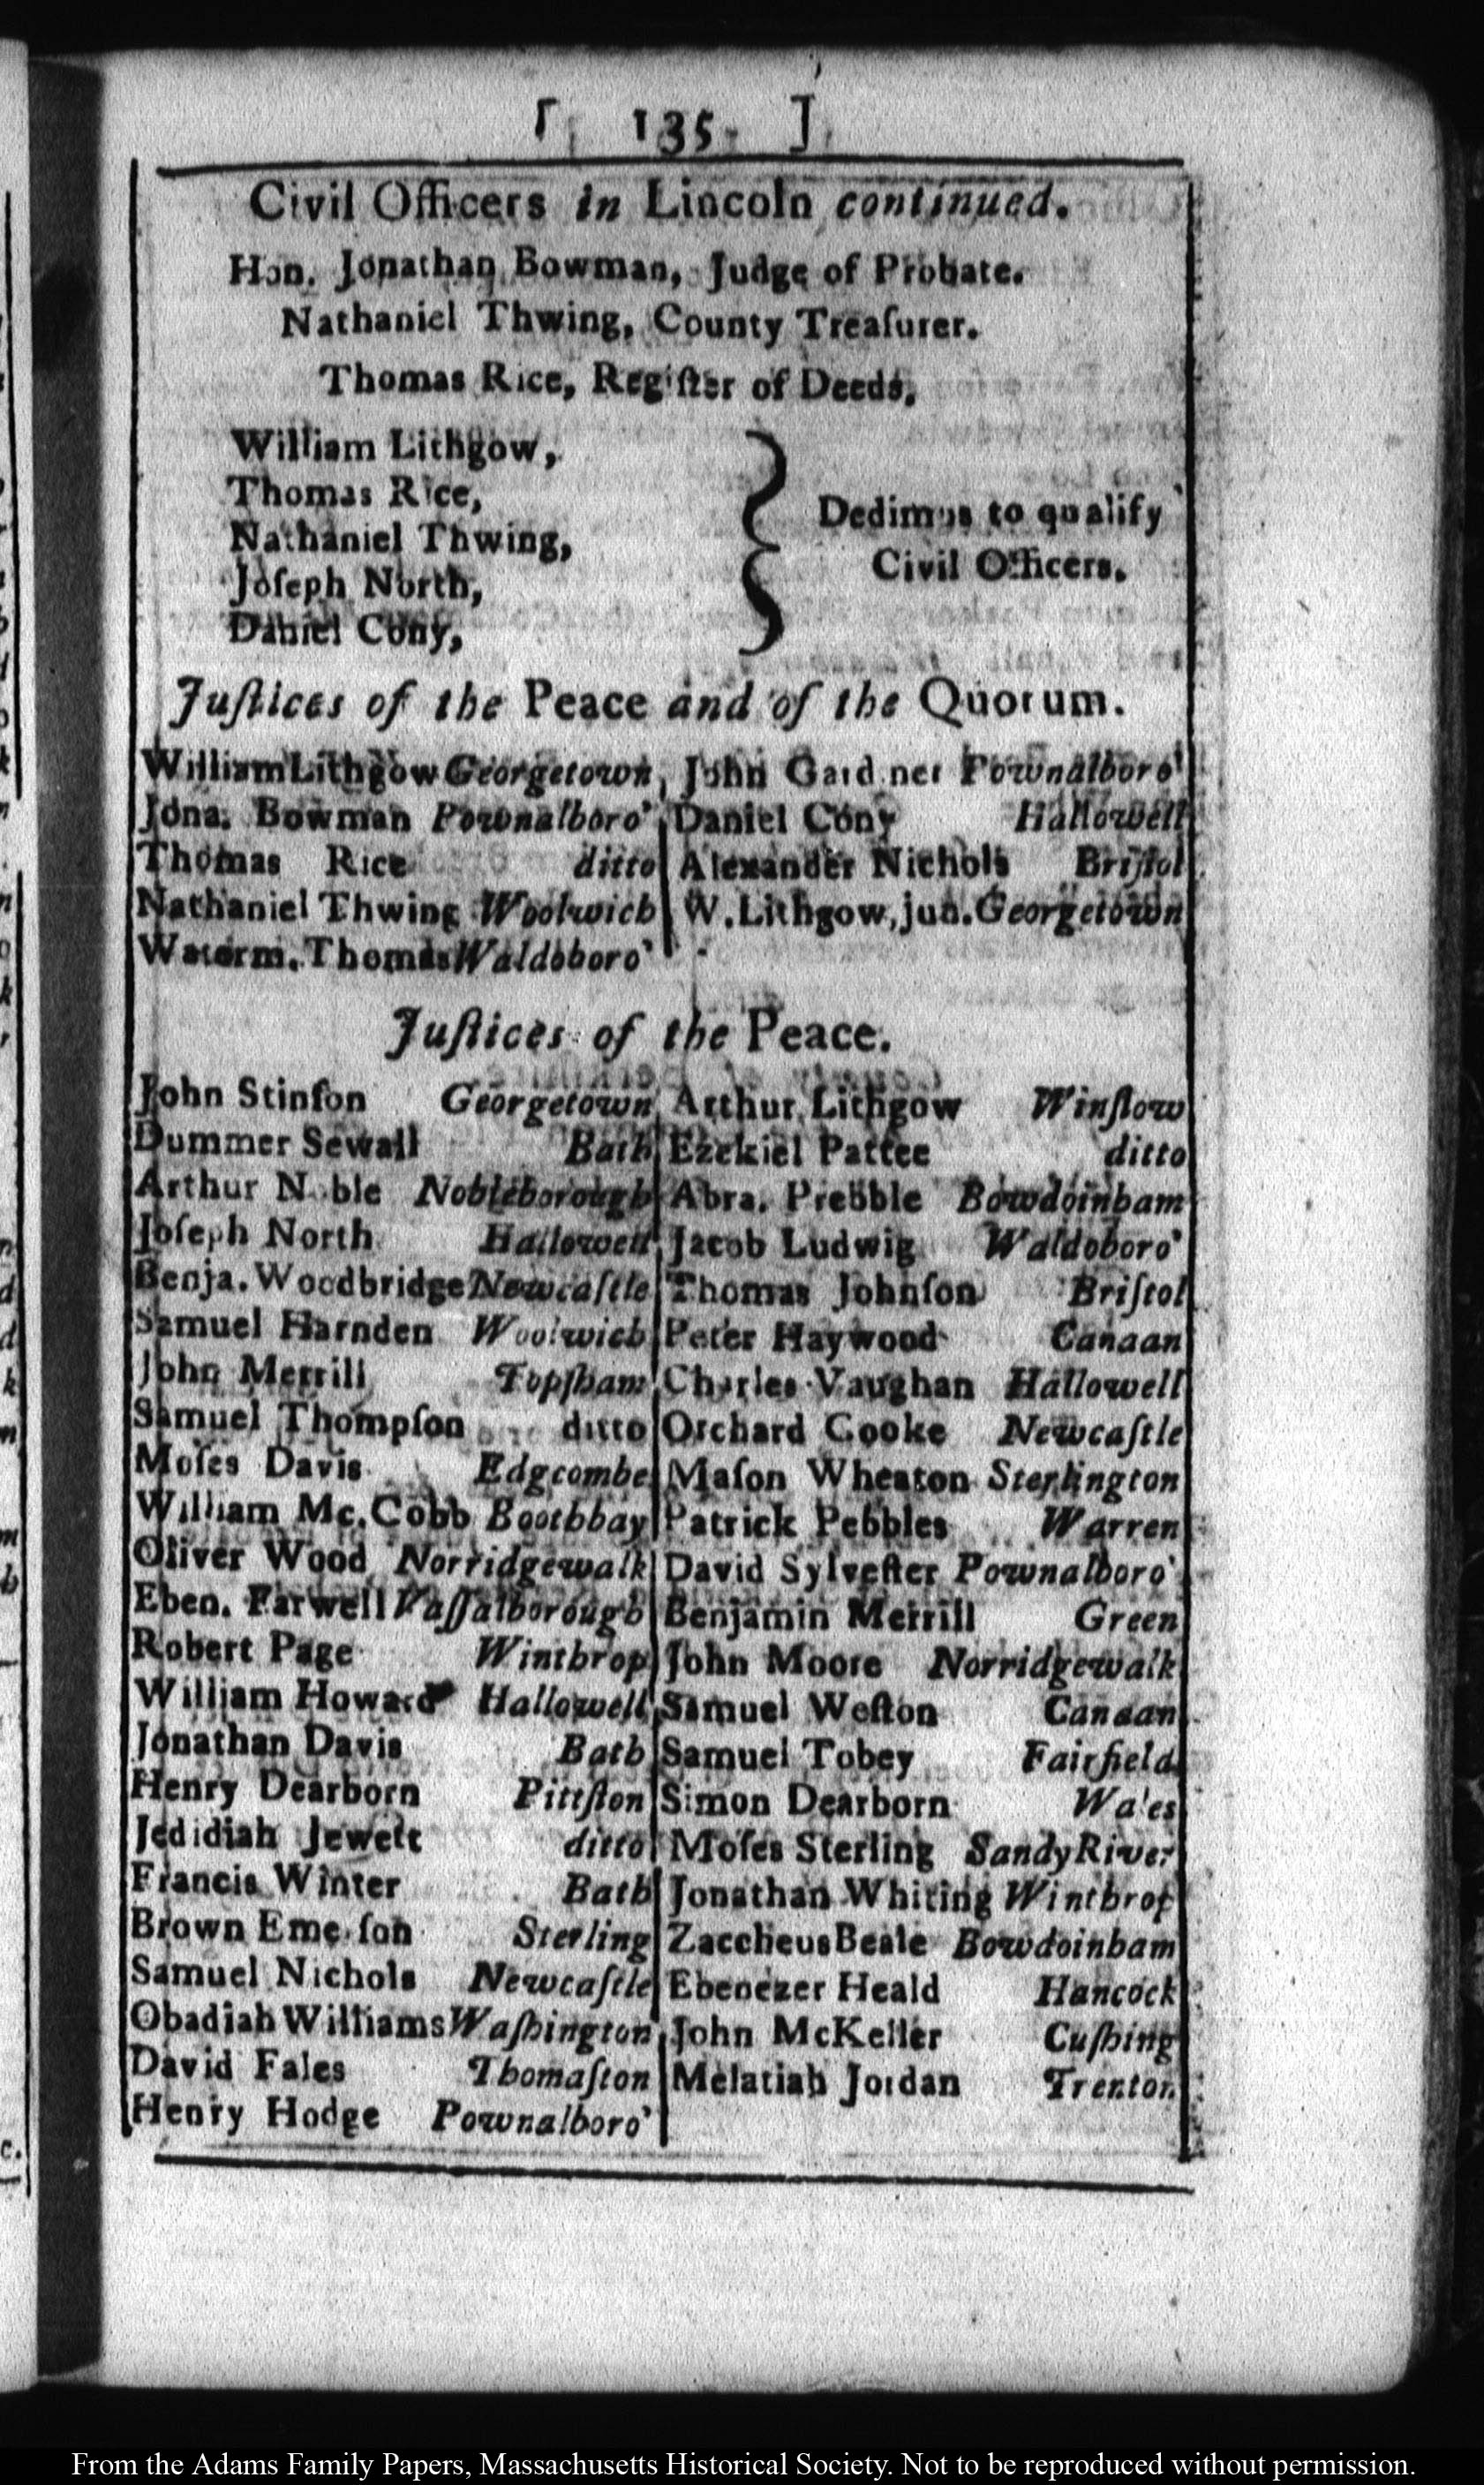 [ 135 ]
Civil Officers in Lincoln continued.
Hon. Jonathan Bowman, Judge of Probate.
Nathaniel Thwing, County Treaſurer.
Thomas Rice, Regiſter of Deeds,
William Lithgow,
Thomas Rice,
Nathaniel Thwing,
Joſeph North,
Daniel Cony,
Dedimus to qualify
Civil Officers.
Juſtices of the Peace and of the Quorum.
William Lithgow Georgetown,
Jona. Bowman Pownalboro'
Thomas Rice ditto
Nathaniel Thwing Woolwich
Waterm. Thomas Waldoboro'
John Gardner Pownalboro'
Daniel Cony Hallowell
Alexander Nichols Briſtol
W. Lithgow, jun. Georgetown
Juſtices of the Peace.
John Stinſon Georgetown
Dummer Sewall Bath
Arthur Noble Nobleborough
Joſeph North Hallowell
Benja. Woodbridge Newcaſtle
Samuel Harnden Woolwich
John Merrill Topſham
Samuel Thompſon ditto
Moſes Davis Edgcombe
William Mc. Cobb Boothbay
Oliver Wood Norridgewalk
Eben. Farwell Vaſſalborough
Robert Page Winthrop
William Howard Hallowell
Jonathan Davis Bath
Henry Dearborn Pittſton
Jedidiah Jewett ditto
Francis Winter Bath
Brown Emerſon Sterling
Samuel Nichols Newcaſtle
Obadiah Williams Waſhington
David Fales Thomaſton
Henry Hodge Pownalboro'
Arthur Lithgow Winſlow
Ezekiel Pattee ditto
Abra. Prebble Bowdoinham
Jacob Ludwig Waldoboro'
Thomas Johnſon Briſtol
Peter Haywood Canaan
Charles Vaughan Hallowell
Orchard Cooke Newcaſtle
Maſon Wheaton Sterlington
Patrick Pebbles Warren
David Sylveſter Pownalboro'
Benjamin Merrill Green
John Moore Norridgewalk
Samuel Weſton Canaan
Samuel Tobey Fairfield
Simon Dearborn Wales
Moſes Sterling Sandy River
Jonathan Whiting Winthrop
Zaccheus Beale Bowdoinham
Ebenezer Heald Hancock
John McKeller Cuſhing
Melatiah Jordan Trenton
From the Adams Family Papers, Massachusetts Historical Society. Not to be reproduced without permission.